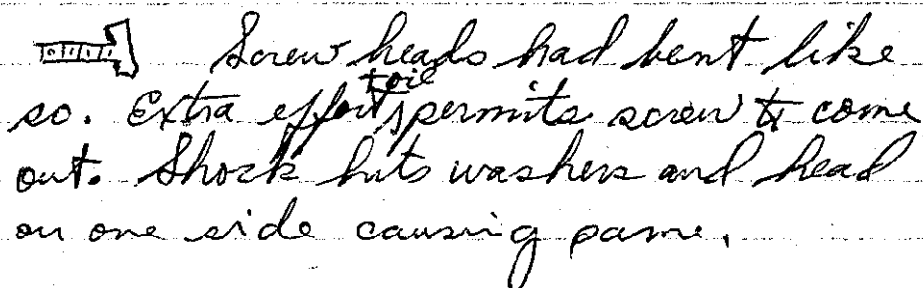 Screw heads had bent like
so. Extra effort, toil permits screw to come
out. Shock hits washers and head
on one side causing same.